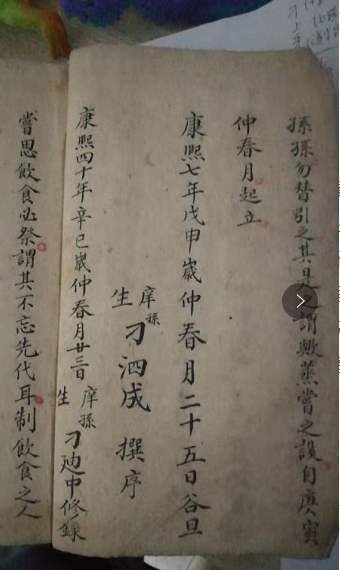 孫孫勿替引之其是之謂歟蒸嘗之設自庚寅
仲春月起立
康熙七年戊申歲仲春月二十五日谷旦
庠生孫刁泗成撰序
康熙四十年辛巳歲仲春月廿三日庠生孫刁廸中修錄
嘗思飲食必祭謂其不忘先代耳制飲食之人